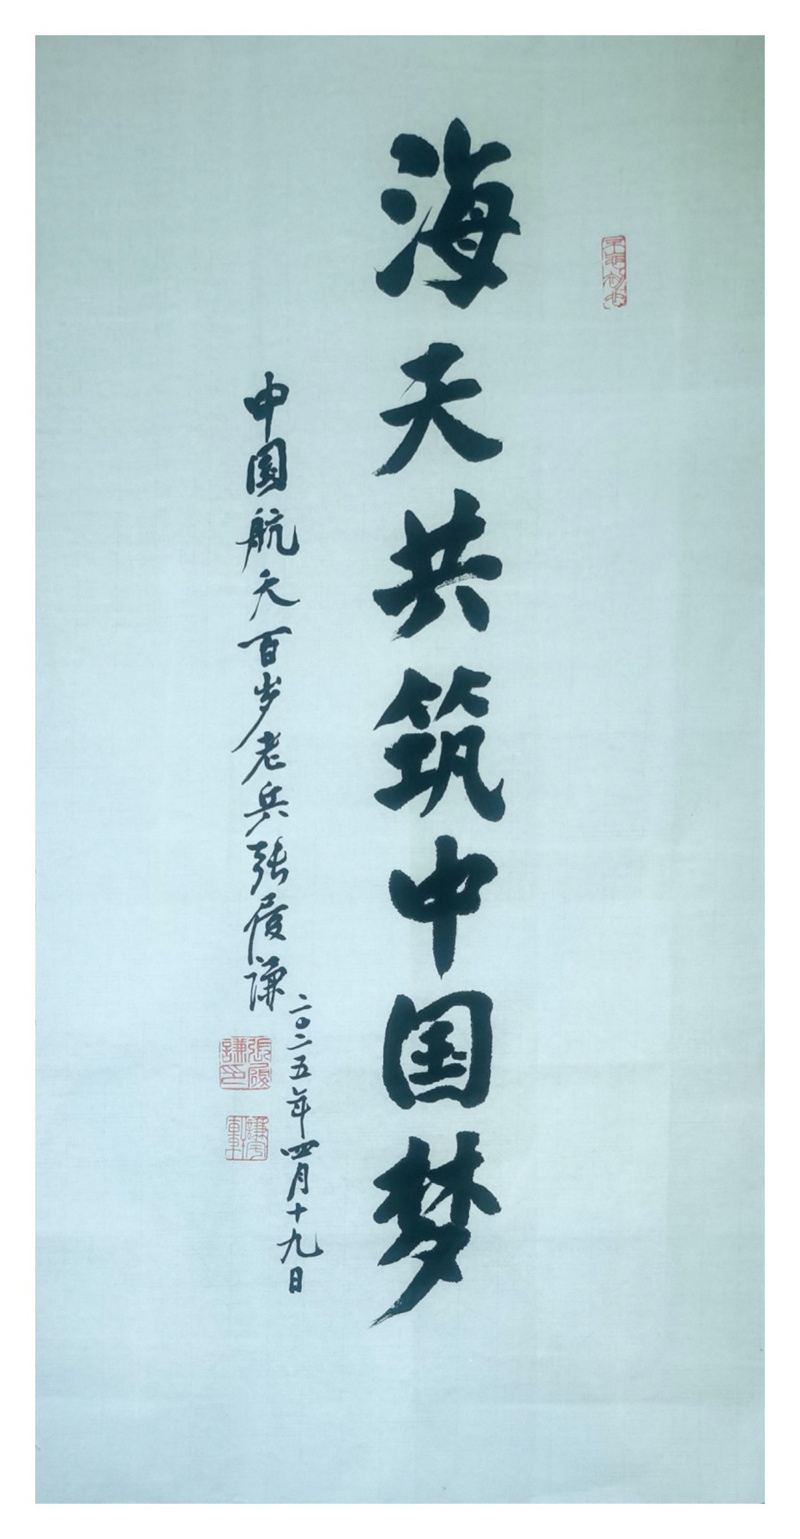 海天共筑中国梦
中国航天百岁老兵张履谦
二〇二五年四月十九日
張履謙印